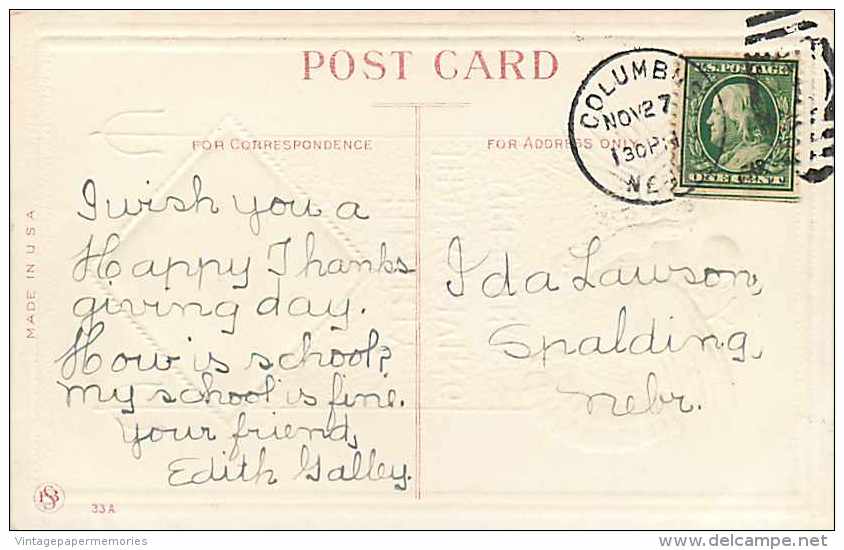 POST CARD
FOR CORRESPONDENCE
FOR ADDRESS ONLY
COLUMBUS
NOV 27
130PM
NEB
U.S. POSTAGE
ONE CENT
MADE IN USA
I wish you a
Happy Thanks
giving day.
How is school?
my school is fine.
Your friend,
Edith Galley.
Ida Lawson,
Spalding,
Nebr.
33A
Vintagepapermemories
delcampe.net